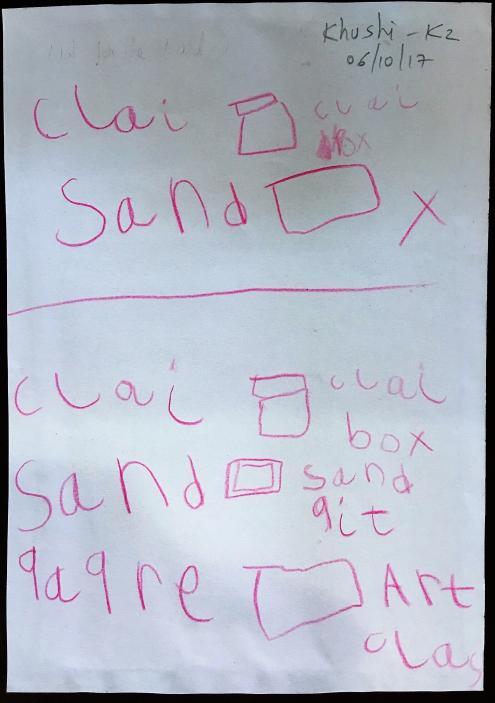 Khushi - K2
06/10/17
clai clai
box
sand x
clai clai
box
sand sand
qit
qaqre Art
clas